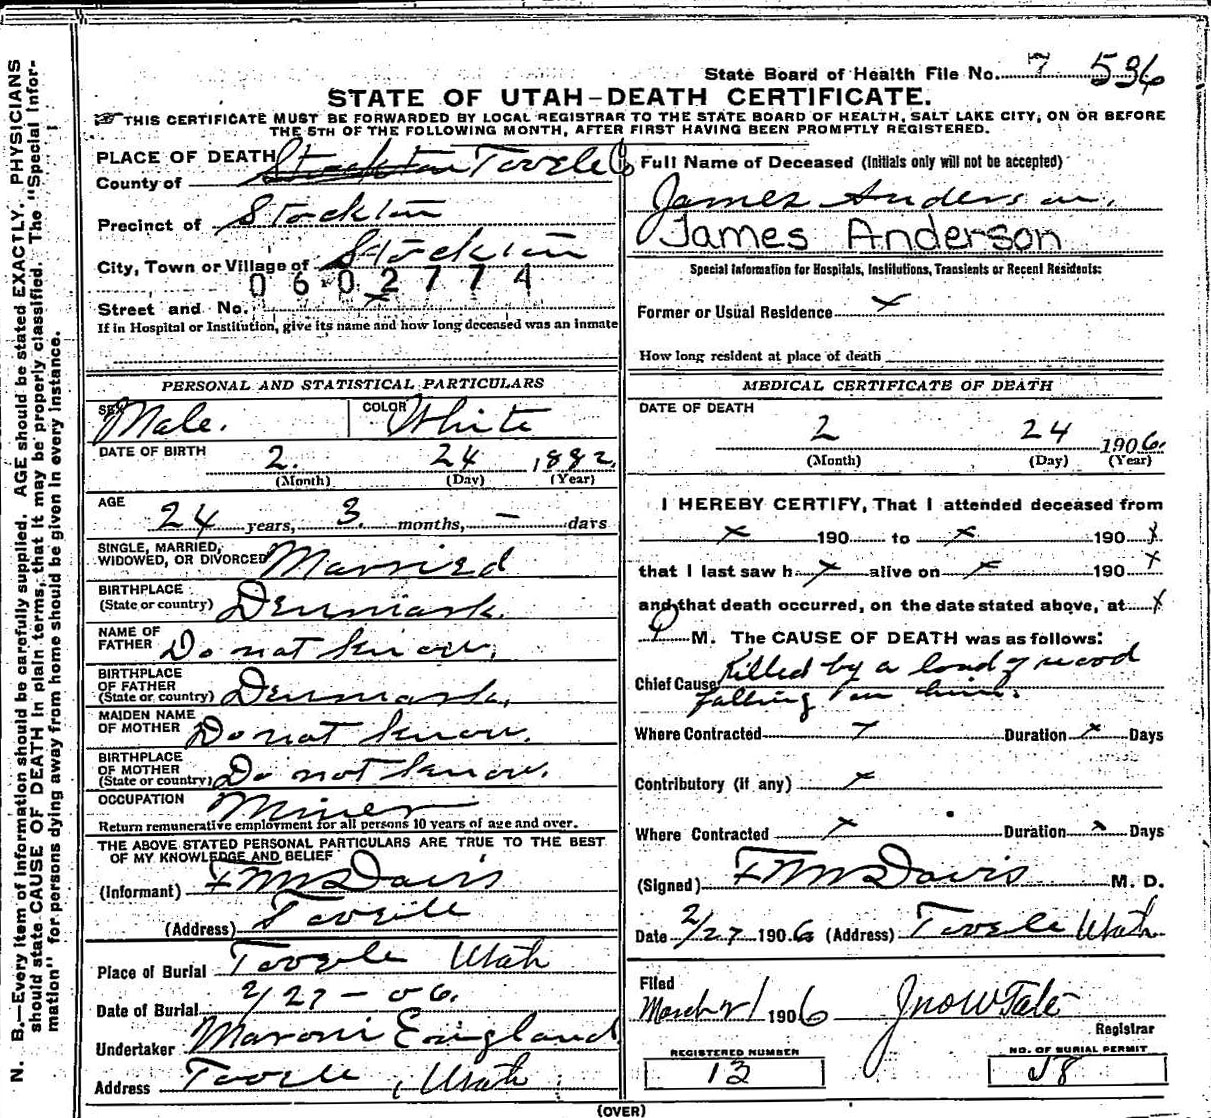 State Board of Health File No. 7 536
STATE OF UTAH–DEATH CERTIFICATE.
THIS CERTIFICATE MUST BE FORWARDED BY LOCAL REGISTRAR TO THE STATE BOARD OF HEALTH, SALT LAKE CITY, ON OR BEFORE
THE 5TH OF THE FOLLOWING MONTH, AFTER FIRST HAVING BEEN PROMPTLY REGISTERED.
PLACE OF DEATH
County of Stockton Tooele Co
Precinct of Stockton
City, Town or Village of Stockton
0602774
Street and No. x
If in Hospital or Institution, give its name and how long deceased was an inmate
Full Name of Deceased (Initials only will not be accepted)
James Anderson.
James Anderson
Special Information for Hospitals, Institutions, Transients or Recent Residents:
Former or Usual Residence x
How long resident at place of death
PERSONAL AND STATISTICAL PARTICULARS
SEX Male. COLOR White
DATE OF BIRTH 2. 24 1882
(Month) (Day) (Year)
AGE
24 years, 3 months, – days
SINGLE, MARRIED,
WIDOWED, OR DIVORCED Married
BIRTHPLACE
(State or country) Denmark.
NAME OF
FATHER Do not know.
BIRTHPLACE
OF FATHER
(State or country) Denmark.
MAIDEN NAME
OF MOTHER Do not know.
BIRTHPLACE
OF MOTHER
(State or country) Do not know.
OCCUPATION Miner
Return remunerative employment for all persons 10 years of age and over.
THE ABOVE STATED PERSONAL PARTICULARS ARE TRUE TO THE BEST
OF MY KNOWLEDGE AND BELIEF
(Informant) F M Davis
(Address) Tooele
Place of Burial Tooele Utah
Date of Burial 2/27–06.
Undertaker Maroni England
Address Tooele, Utah
MEDICAL CERTIFICATE OF DEATH
DATE OF DEATH
2 24 1906.
(Month) (Day) (Year)
I HEREBY CERTIFY, That I attended deceased from
x 190 to x 190 x
that I last saw h x alive on x 190 x
and that death occurred, on the date stated above, at x
M. The CAUSE OF DEATH was as follows:
Chief Cause Killed by a load of wood
falling on him.
Where Contracted x Duration x Days
Contributory (if any) x
Where Contracted x Duration x Days
(Signed) F M Davis M. D.
Date 2/27 1906 (Address) Tooele Utah
Filed
March 1 1906 Jno W Tate
Registrar
REGISTERED NUMBER
13
NO. OF BURIAL PERMIT
J8
(OVER)
N. B.—Every item of information should be carefully supplied. AGE should be stated EXACTLY. PHYSICIANS
should state CAUSE OF DEATH in plain terms, that it may be properly classified. The "Special Infor-
mation" for persons dying away from home should be given in every instance.